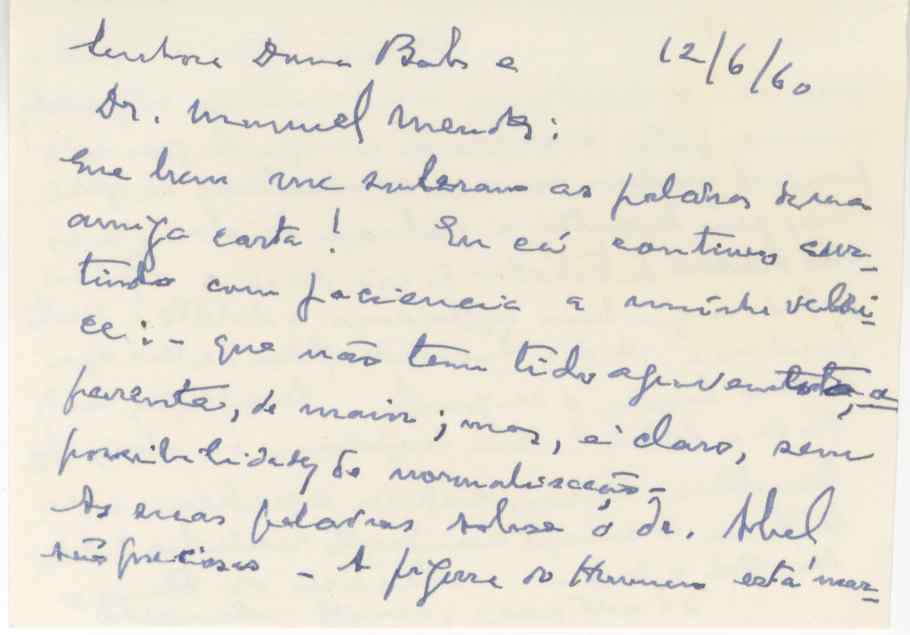 Senhora Dona Babs e 12/6/60
Dr. Manuel Mendes:
Que bem me souberam as palavras da sua
amiga carta! Eu cá continuo cur-
tindo com paciencia a minha velhi-
ce: - que não tem tido agravante, a-
parente, de maior; mas, é claro, sem
possibilidades de normalização -
As suas palavras sobre o dr. Abel
são preciosas - A figura do Homem está mar-